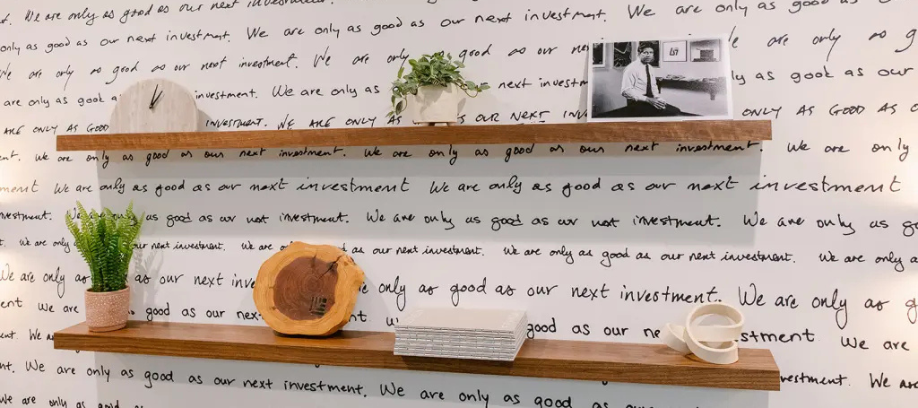 t. We are only as good as our next investment.
only as good as our next investment. We are only as good as our next investment. We are only as good as
We are only as good as our next investment. We are only as good as our next We are only as g
are only as good a investment. We are only as next investment ly as good as our
ARE ONLY AS GOOD INVESTMENT. WE ARE ONLY AS S OUR NEXT IN ONLY AS GOOD AS O
ent. We are only as good as our next investment. We are only as good as our next investment. We are only
ment We are only as good as our next investment We are only as good as our next investment
nvestment. as good as our next investment. We are only as good as our next investment. We are only as go
t. We are only our next investment. We are on t as our next investment. We are only as good as our next investment. We are only a
We are only as as our next inve We are only as good as our next investment. We are only as g
ent We are good as our next good as our ne stment We are
nt. We a
nt. We are only as good as our next investment. We are only as good as our next investment. We are
We are only as good